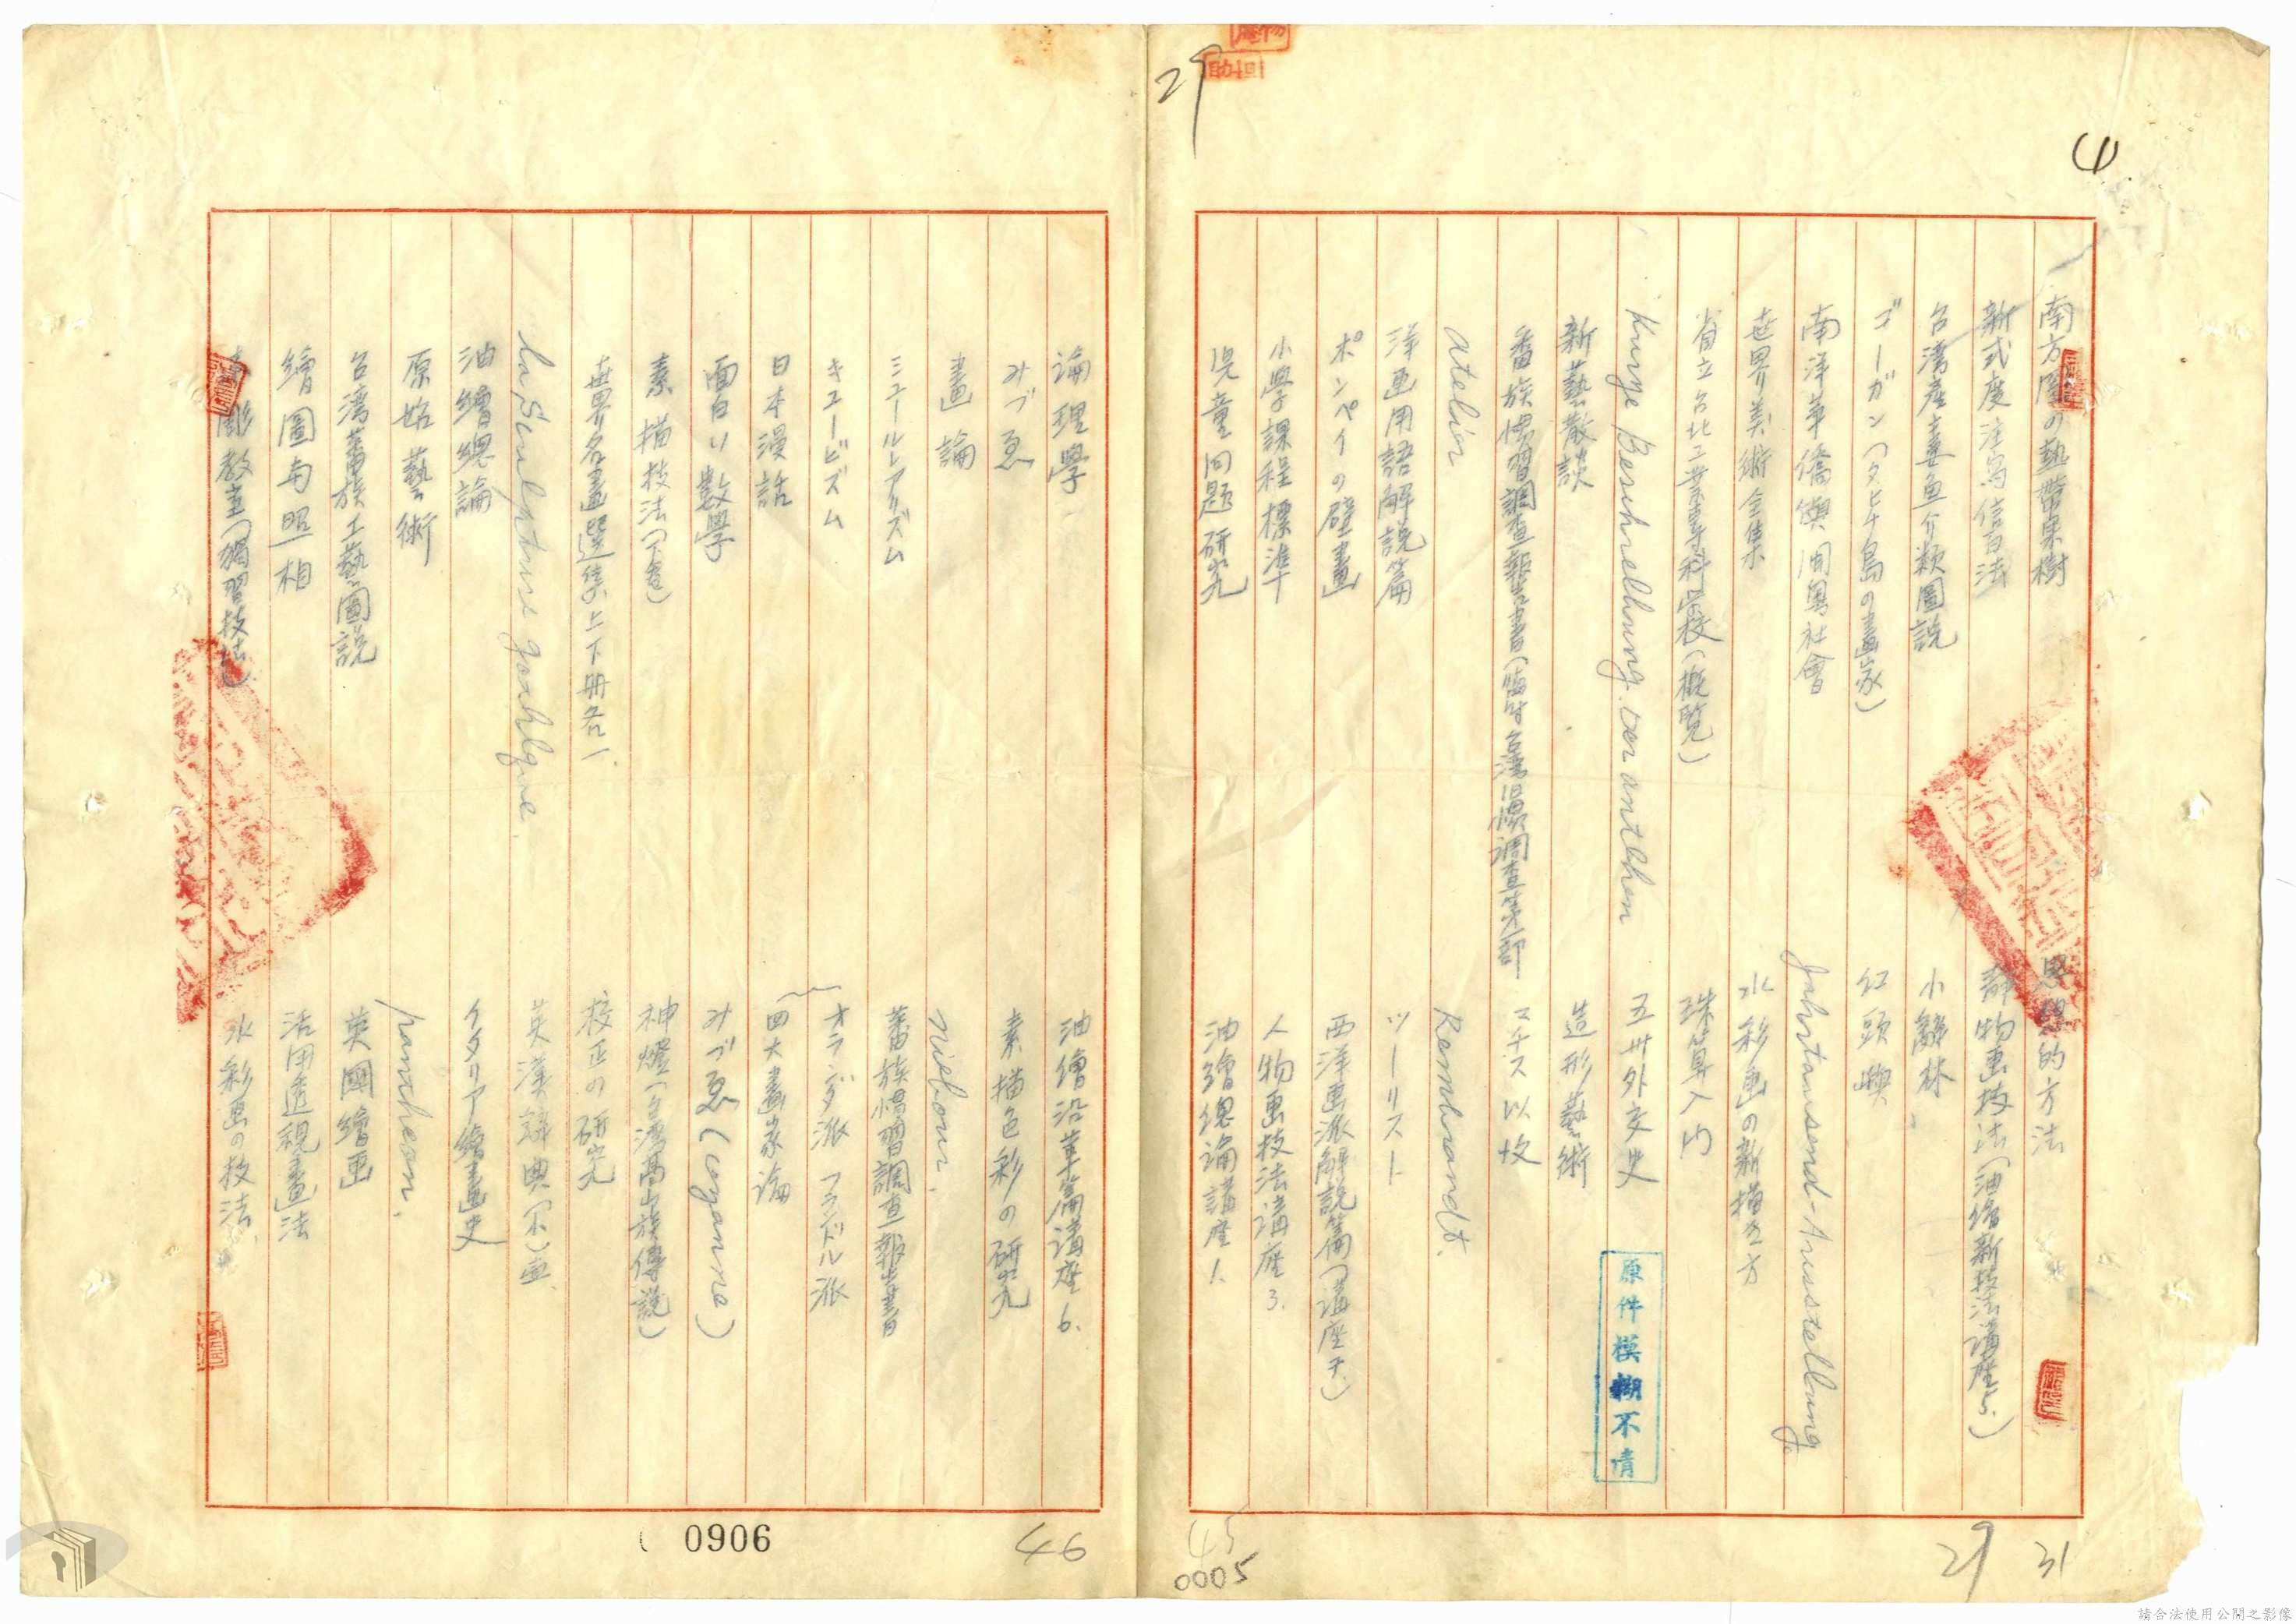 29
(1)
南方圏の熱帶果樹
思想的方法
新式度注寫信百法
靜物画技法(油繪新技法講座5.)
台湾産主要魚介類圖説
小辭林
ゴーガン(タヒチ島の畫家)
紅頭嶼
南洋華僑與閩粤社會
Jahrtausend-Ausstellung
世界美術全集
水彩画の新描き方
省立台北工業專科學校(概覽)
珠算入門
Kurze Beschreibung der antiken
五卅外交史
新藝散談
造形藝術
番族慣習調查報告書 台灣舊慣調查第一部
マチス以後
atelier
Rembrandt.
洋画用語解説篇
ツーリスト
ポンペイの壁畫
西洋画派解説篇(講座7.)
小學課程標準
人物画技法講座3.
児童问题研究
油繪総論講座1.
原件模糊不清
45
0005
29 31
論理學
油繪沿革篇講座6.
みづゑ
素描色彩の研究
畫論
シュールレアリズム
蕃族慣習調查報告書
キュービズム
オランダ派 フランドル派
日本漫話
四大畫家論
面白い數學
みづゑ(cezanne)
素描技法(下卷)
神燈(台灣高山族傳説)
世界名畫選集上下册各一.
校正の研究
La Sculpture
英漢辭典(小)壹.
油繪總論
イタリア繪畫史
原始藝術
pantheon.
台湾蕃族工藝圖説
英國繪画
繪圖与照相
活用透視畫法
彫教室(獨習技法)
水彩画の技法.
0906
46
請合法使用公開之影像